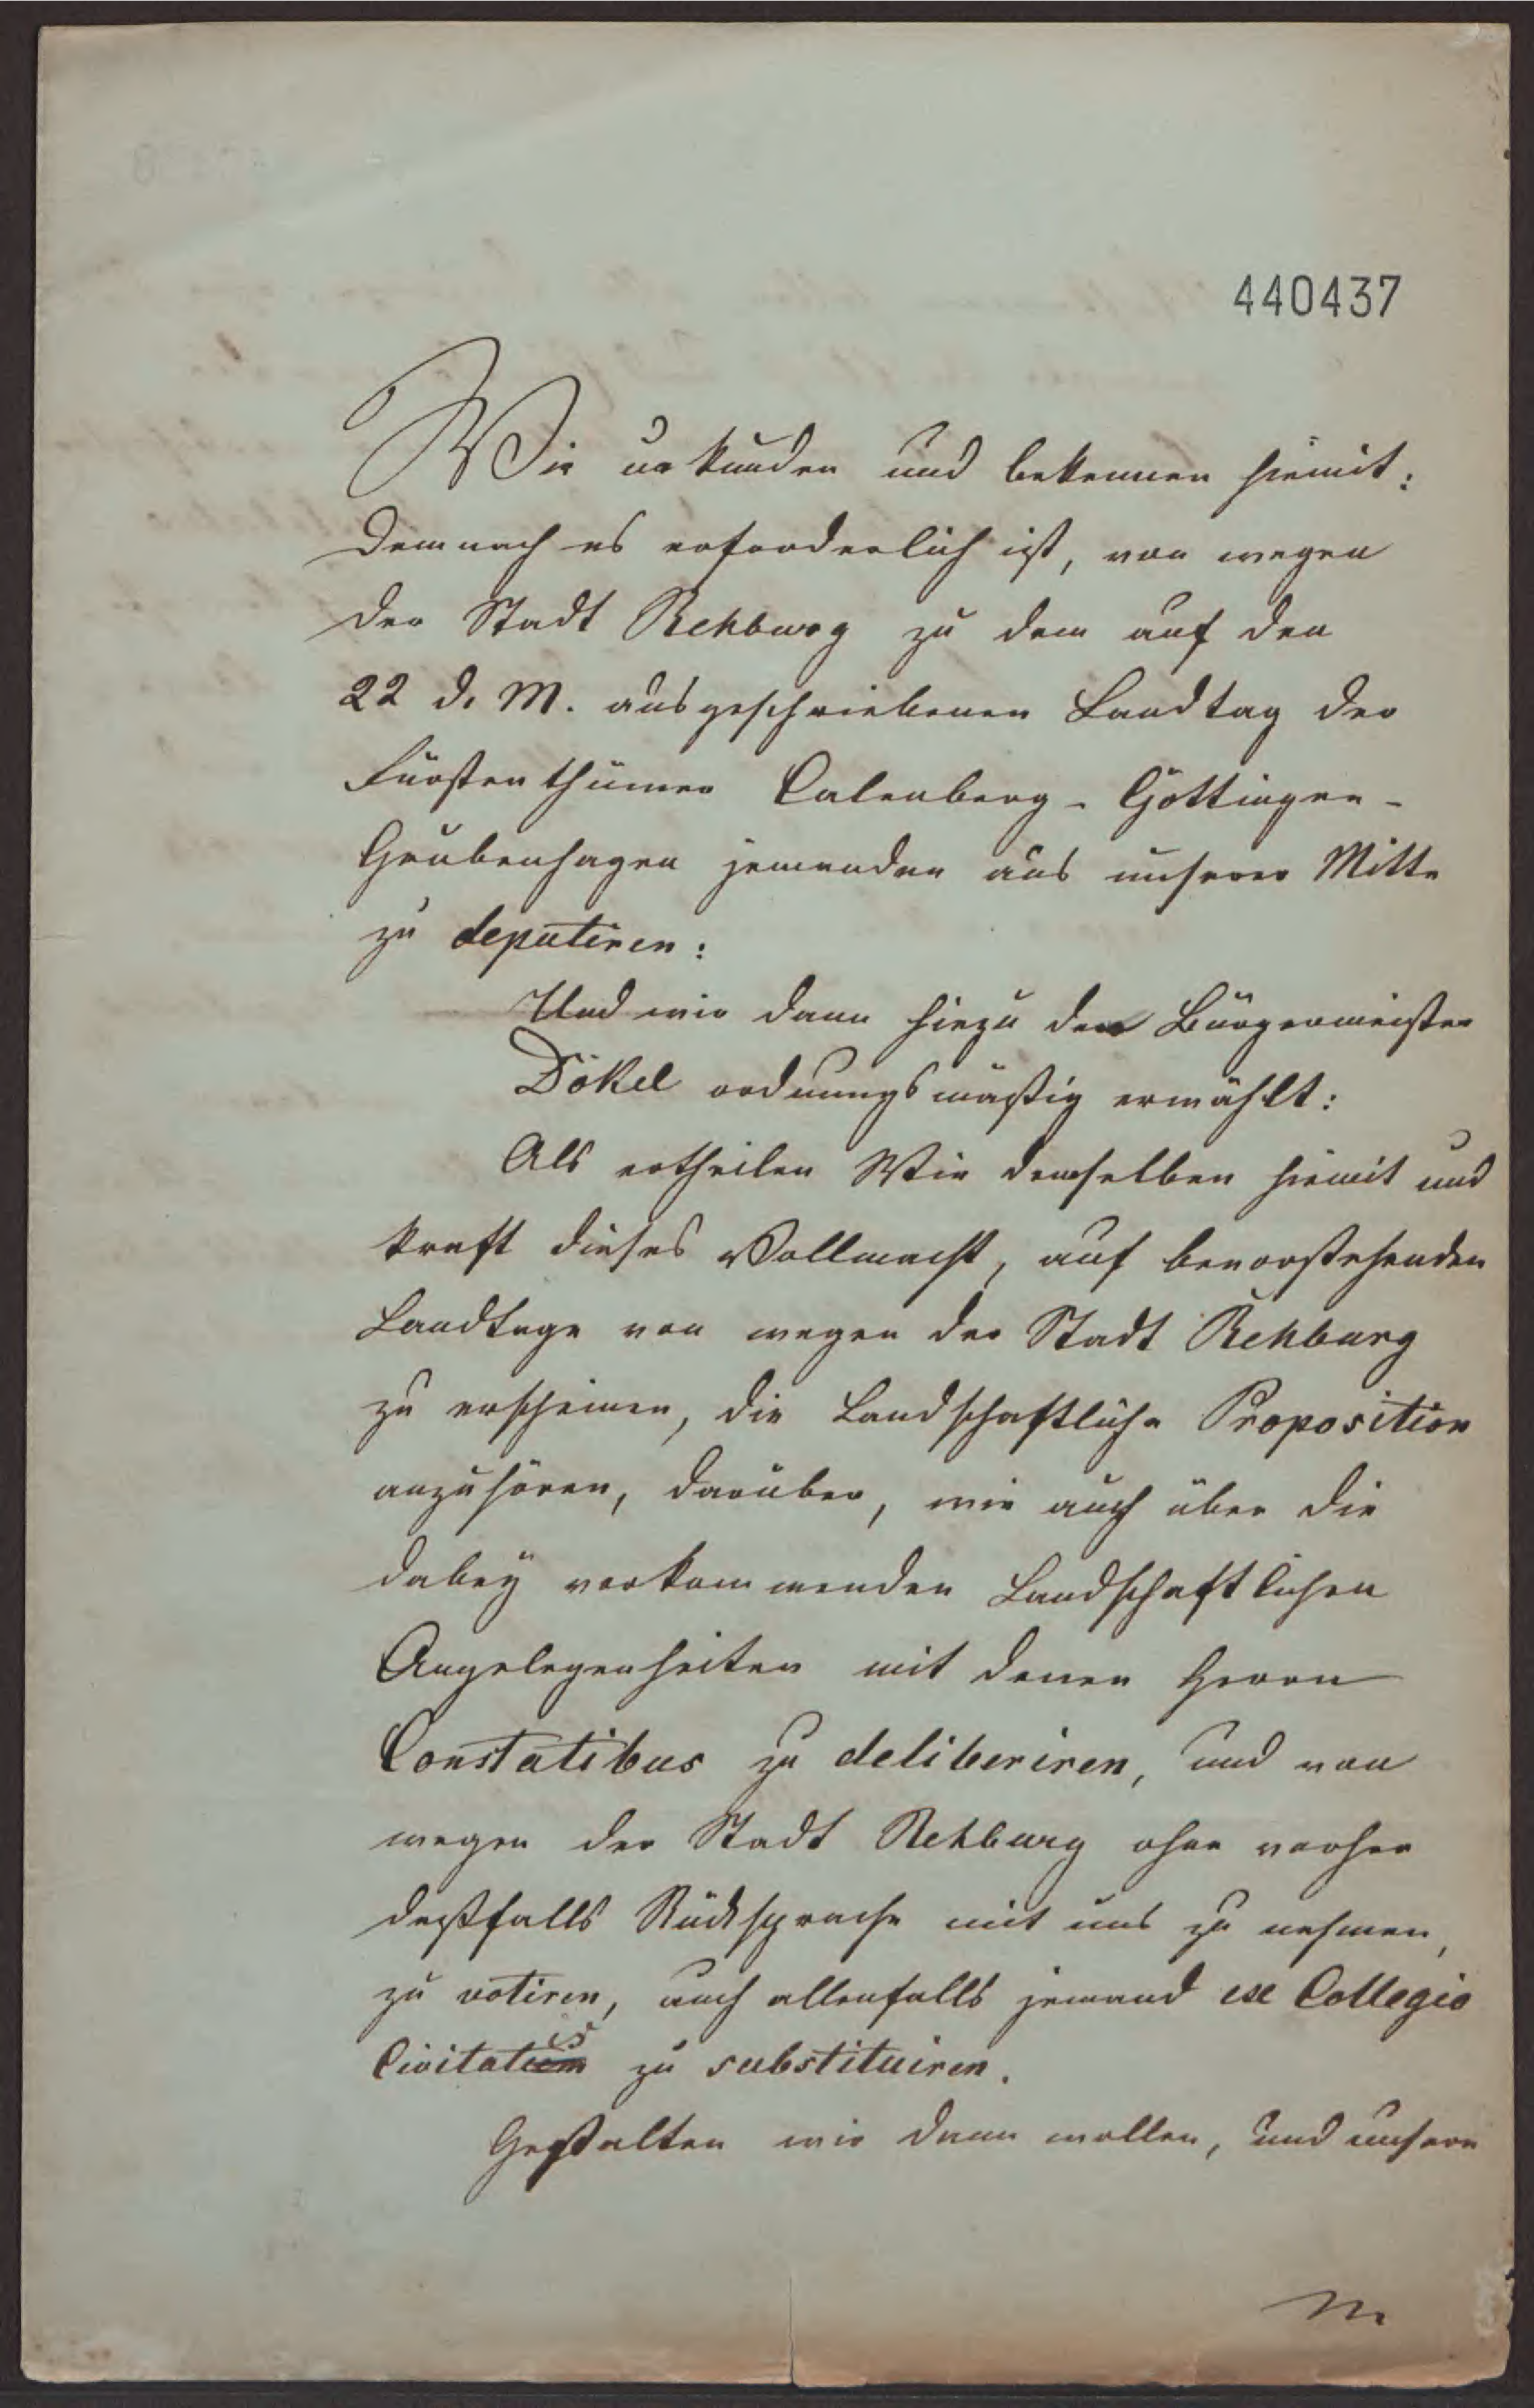 440437
Wir urkunden und bekennen hiemit:
Demnach es erforderlich ist, von wegen
der Stadt Rehburg zu dem auf den
22 d. M. ausgeschriebenen Landtag der
Fürstenthümer Calenberg-Göttingen-
Grubenhagen jemanden aus unserer Mitte
zu deputiren:
Und wir dann hiezu den Bürgermeister
Dökel ordnungsmäßig erwählt:
Als ertheilen Wir demselben hiemit und
kraft dieses Vollmacht, auf bevorstehenden
Landtage von wegen der Stadt Rehburg
zu erscheinen, die Landschaftliche Proposition
anzuhören, darüber, wie auch über die
dabey vorkommenden Landschaftlichen
Angelegenheiten mit denen Herrn
Constatibus zu deliberiren, und von
wegen der Stadt Rehburg ohne vorher
deßfalls Rücksprache mit uns zu nehmen,
zu votiren, auch allenfalls jemand ex Collegio
Civitatis zu substituiren.
Gestalten wir dann wollen, und unsere